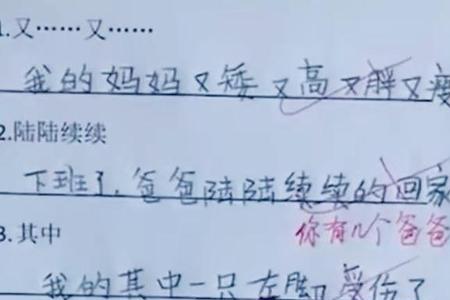 1.又……又……
我的妈妈又矮又高又胖又瘦
2.陆陆续续
下班了,爸爸陆陆续续的回家
你有几个爸爸
3.其中
我的其中一只左脚受伤了